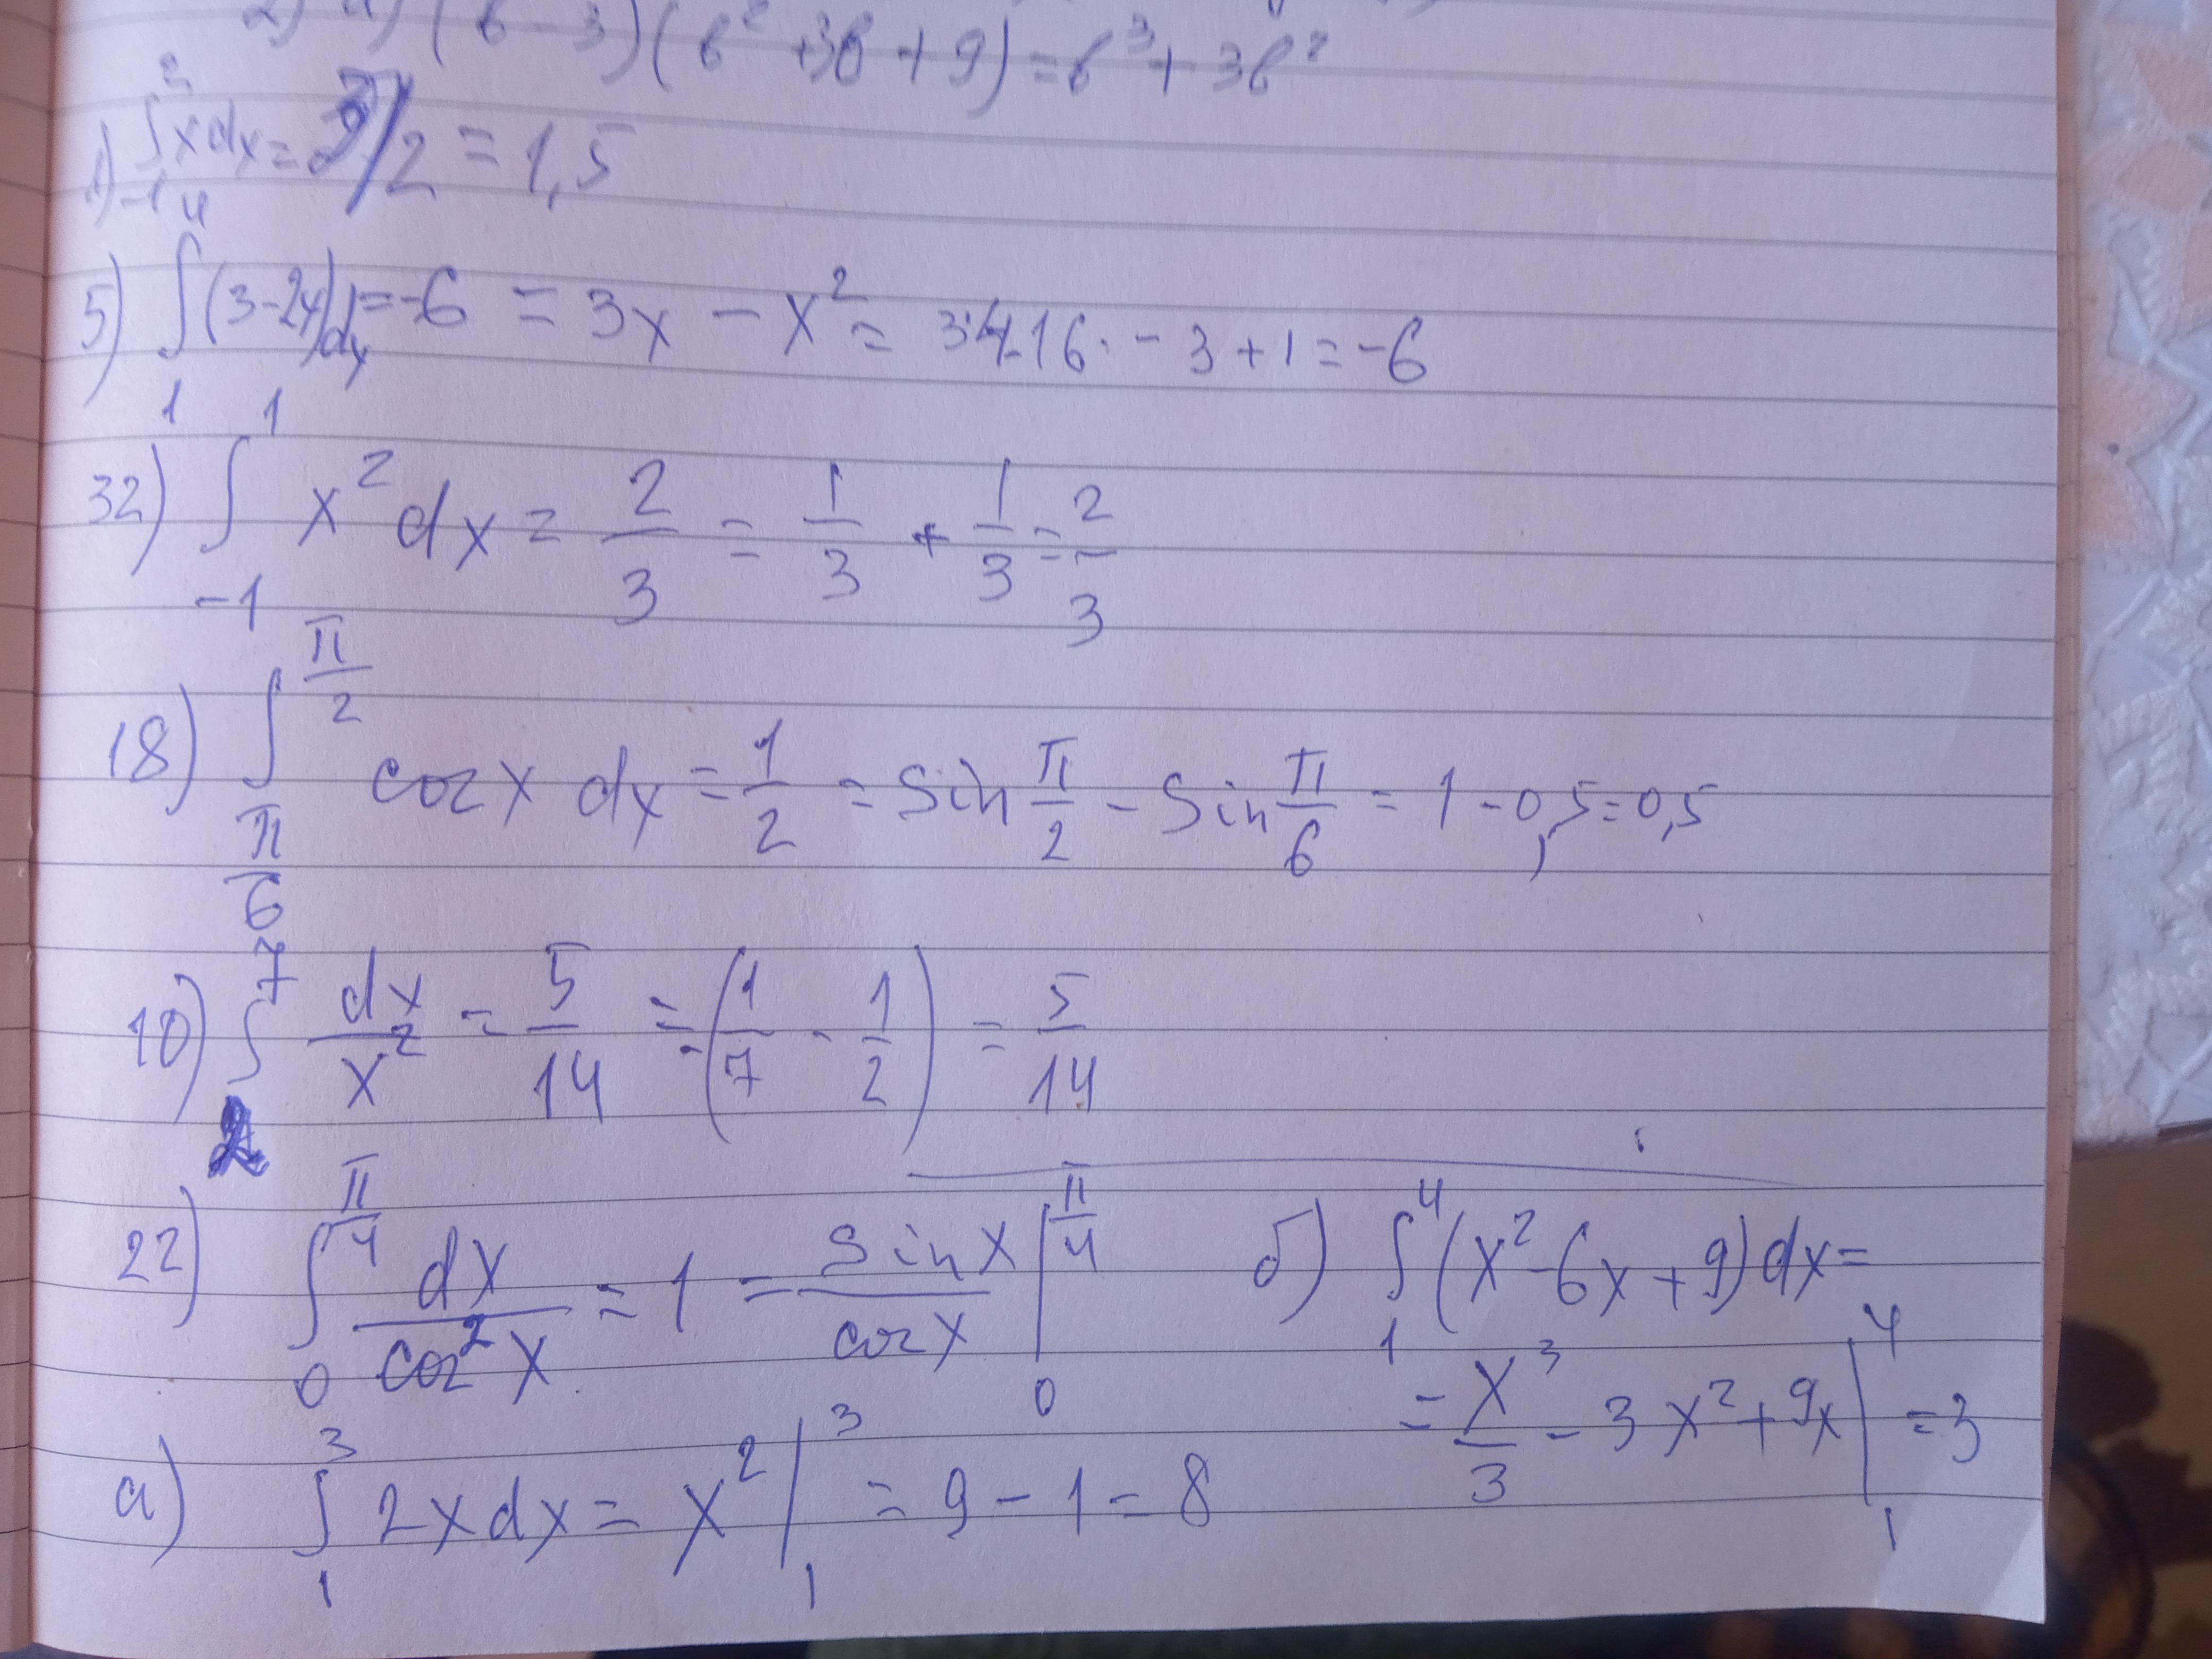 2) а) (b - 3)(b² + 3b + 9) = b³ + 3b²
1) ∫₋₁² x dx = 3/2 = 1,5
5) ∫₁⁴ (3 - 2x) dx = -6 = 3x - x² = 3·4 - 16 - 3 + 1 = -6
32) ∫₋₁¹ x² dx = 2/3 = 1/3 + 1/3 = 2/3
18) ∫_{π/6}^{π/2} cos x dx = 1/2 = sin π/2 - sin π/6 = 1 - 0,5 = 0,5
10) ∫₂⁷ dx/x² = 5/14 = -(1/7 - 1/2) = 5/14
22) ∫₀^{π/4} dx/cos² x = 1 = sin x/cos x |₀^{π/4}
б) ∫₁⁴ (x² - 6x + 9) dx =
= x³/3 - 3x² + 9x |₁⁴ = 3
а) ∫₁³ 2x dx = x² |₁³ = 9 - 1 = 8